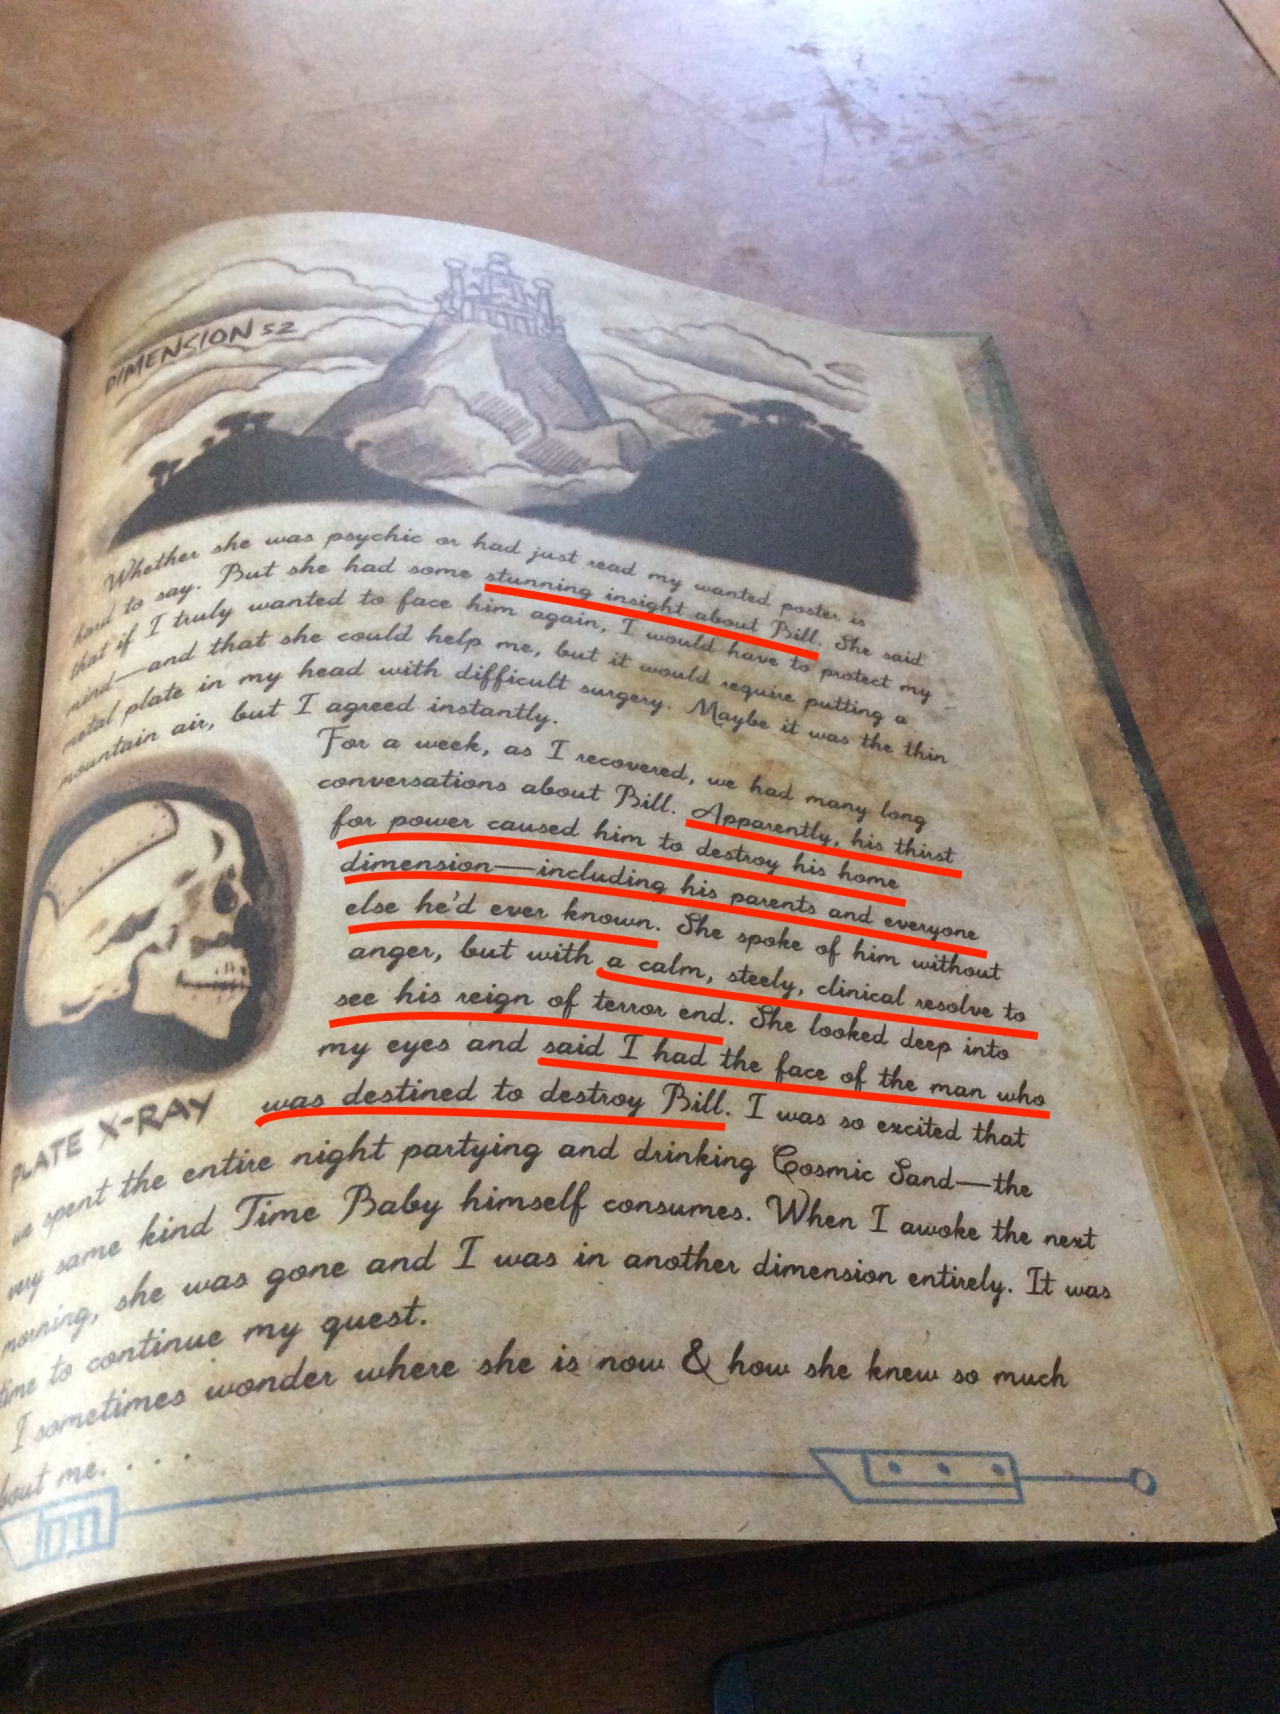 DIMENSION 52
Whether she was psychic or had just read my wanted poster is
hard to say. But she had some stunning insight about Bill. She said
that if I truly wanted to face him again, I would have to protect my
mind—and that she could help me, but it would require putting a
metal plate in my head with difficult surgery. Maybe it was the thin
mountain air, but I agreed instantly.
For a week, as I recovered, we had many long
conversations about Bill. Apparently, his thirst
for power caused him to destroy his home
dimension—including his parents and everyone
else he'd ever known. She spoke of him without
anger, but with a calm, steely, clinical resolve to
see his reign of terror end. She looked deep into
my eyes and said I had the face of the man who
was destined to destroy Bill. I was so excited that
PLATE X-RAY
we spent the entire night partying and drinking Cosmic Sand—the
very same kind Time Baby himself consumes. When I awoke the next
morning, she was gone and I was in another dimension entirely. It was
time to continue my quest.
I sometimes wonder where she is now & how she knew so much
about me. . . .